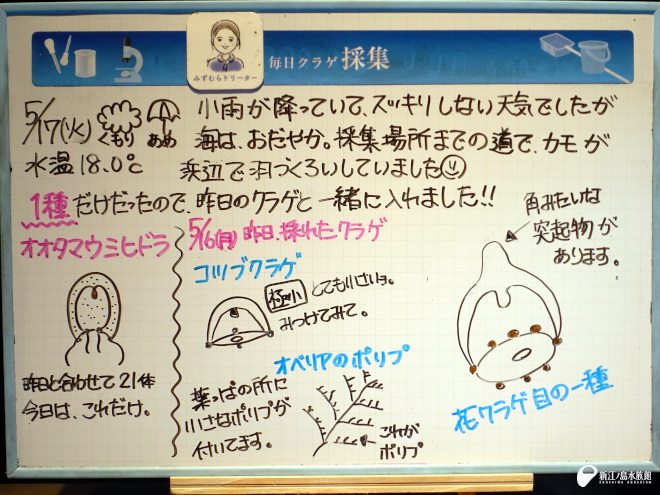 みずむらトリーター
毎日クラゲ採集
5/17(火) くもり あめ
水温18.0℃
小雨が降っていて、スッキリしない天気でしたが
海は、おだやか。採集場所までの道で、カモが
浜辺で羽づくろいしていました
1種だけだったので、昨日のクラゲと一緒に入れました!!
オオタマウミヒドラ
昨日と合わせて21体
今日は、これだけ。
5/16(月)昨日、採れたクラゲ
コツブクラゲ
極小 とても小さいョ。
みつけてみて。
オベリアのポリプ
葉っぱの所に
小さなポリプが
付いてます。
これが
ポリプ
角みたいな
突起物が
あります。
花クラゲ目の一種
新江ノ島水族館
ENOSHIMA AQUARIUM